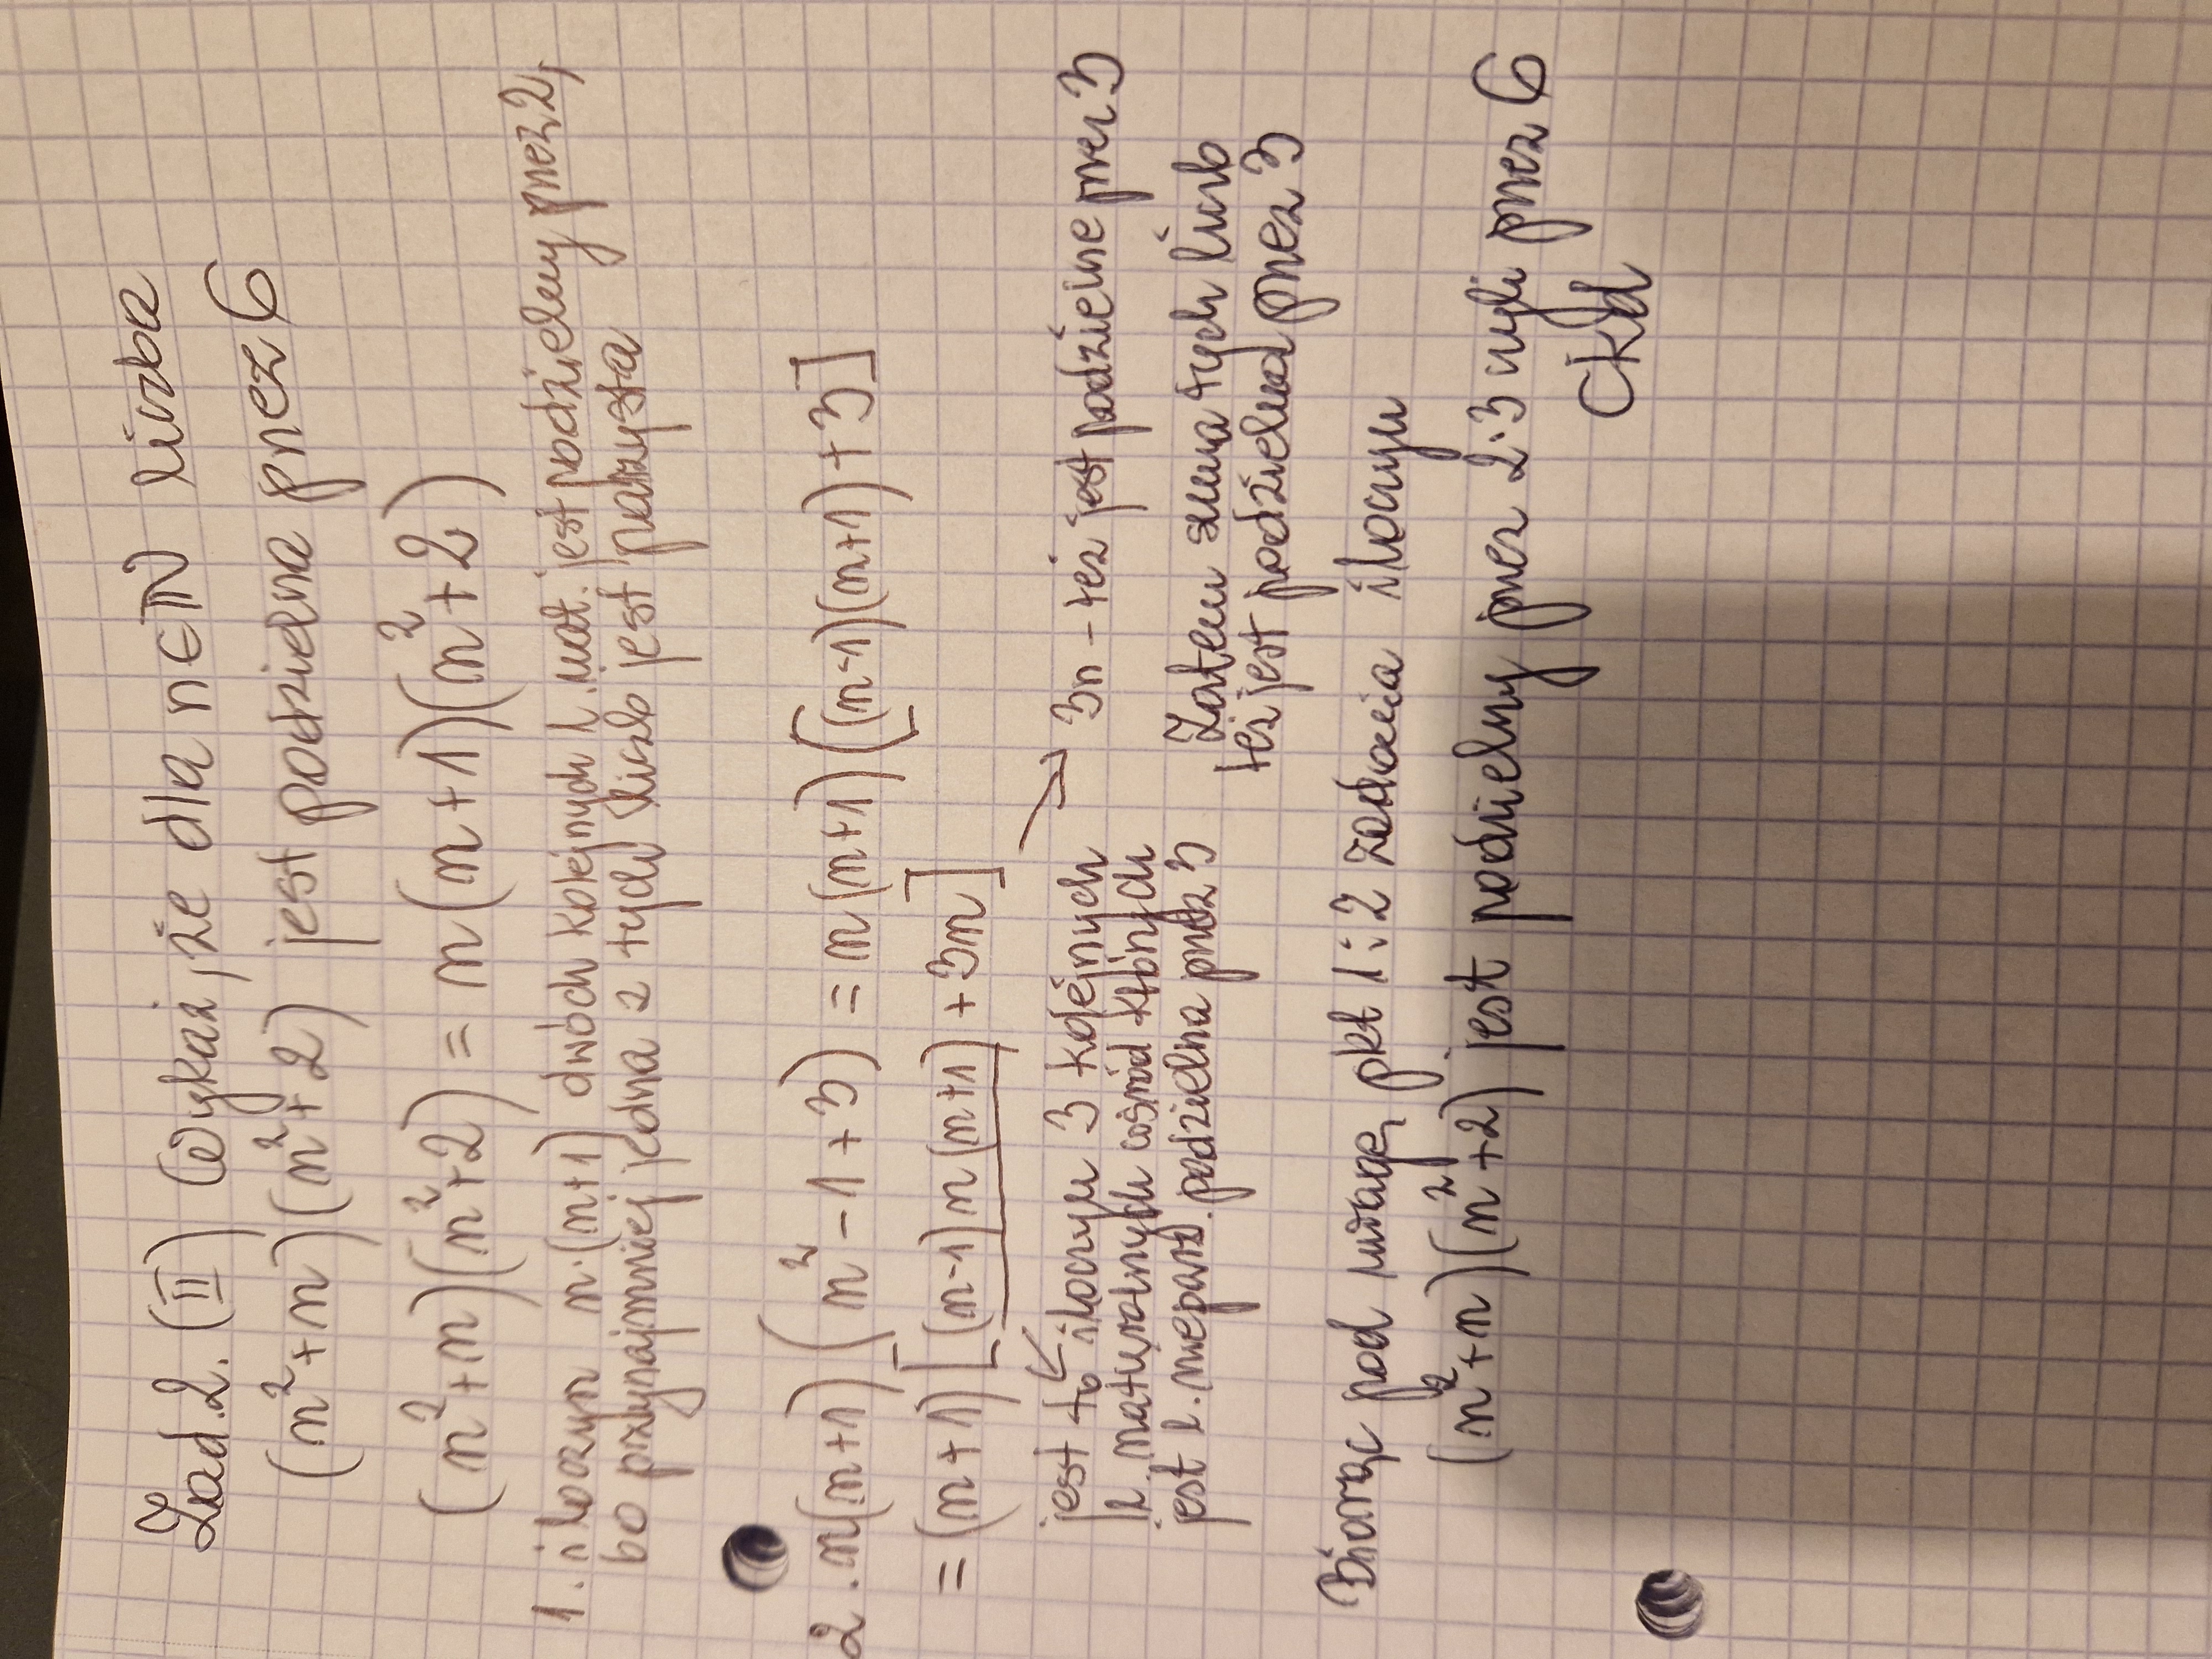 Zad.2. (II) Wykaż, że dla n∈ℕ liczba
(n²+n)(n²+2) jest podzielna przez 6
(n²+n)(n²+2) = n(n+1)(n²+2)
1. iloczyn n·(n+1) dwóch kolejnych l. nat. jest podzielny przez 2,
bo przynajmniej jedna z tych liczb jest parzysta
2. n(n+1)(n²-1+3) = n(n+1)([(n-1)(n+1)+3]
= (n+1)[(n-1)n(n+1)+3n]
jest to iloczyn 3 kolejnych
l. naturalnych wśród których
jest l. niepard. podzielna przez 3
→ 3n - też jest podzielne przez 3
Zatem suma tych liczb
też jest podzielna przez 3
Biorąc pod uwagę pkt 1 i 2 zachodzi iloczyn
(n²+n)(n²+2) jest podzielny przez 2·3 czyli przez 6
Ckd